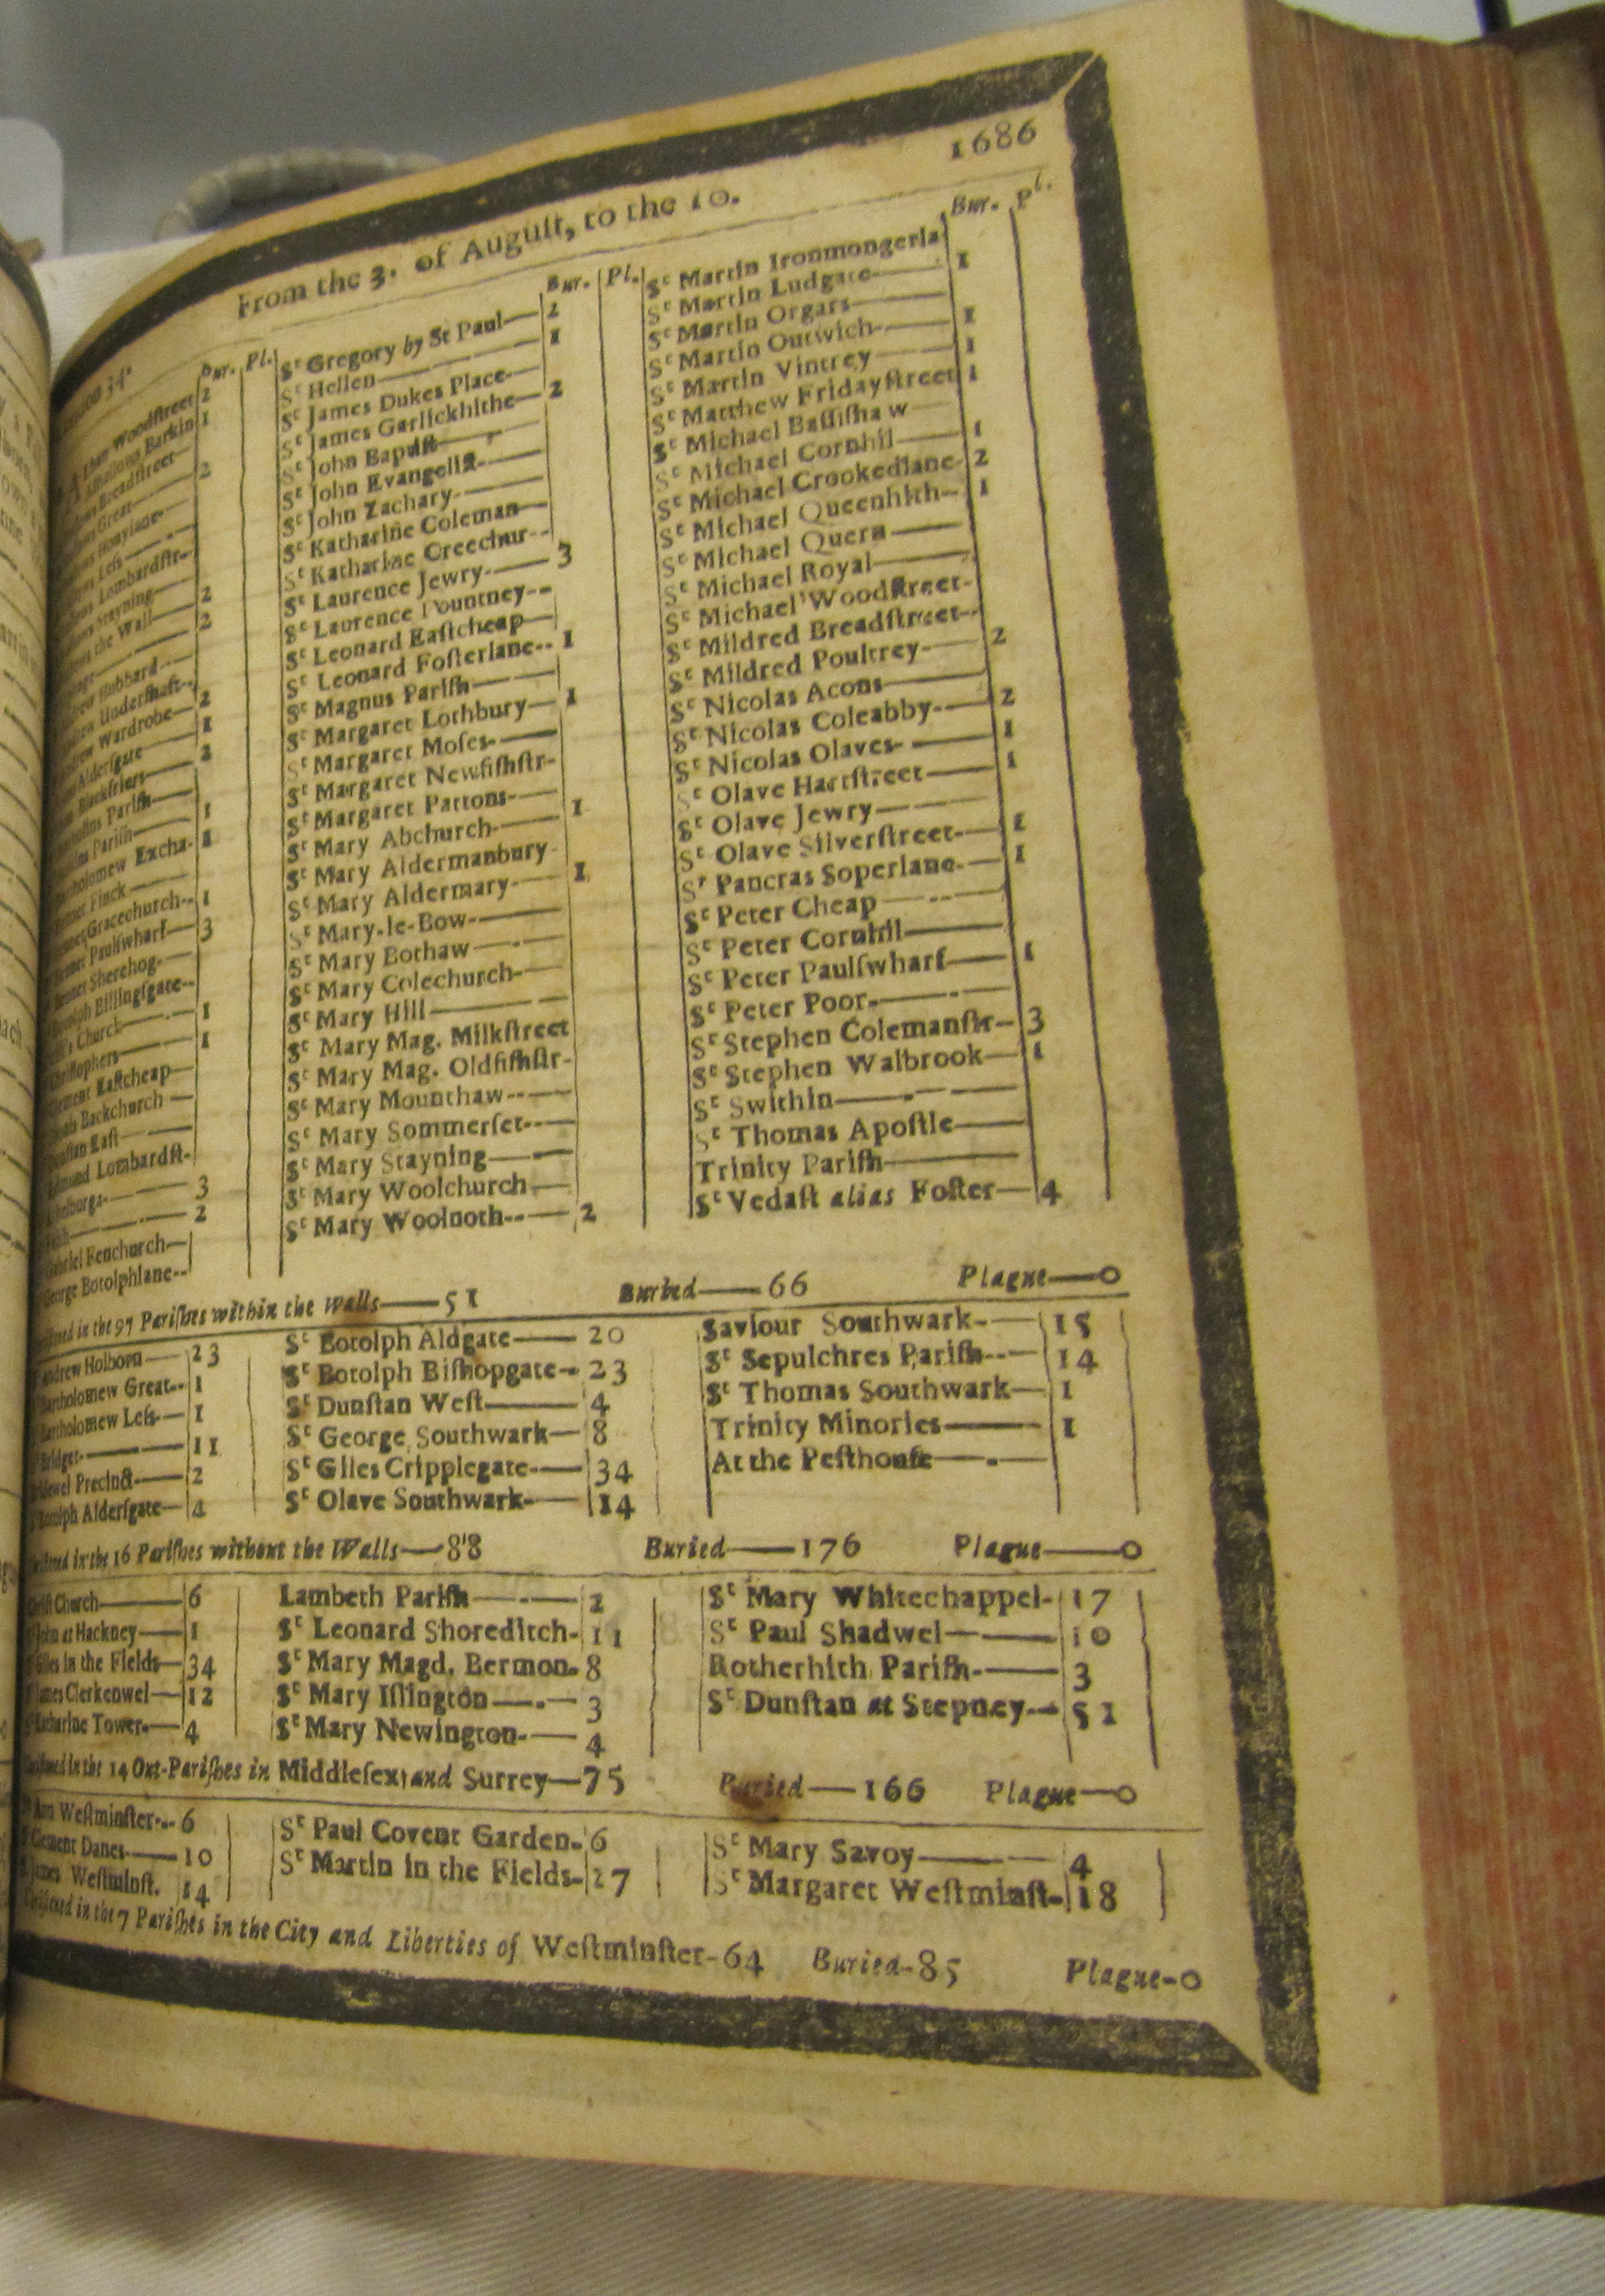 1686
From the 3. of Auguſt, to the 10.
Bur. Pl.
Woodſtreet 2
Barkin 1
Breadſtreet
Great 2
Honylane
Leſs
Lombardſtr
Stayning
the Wall 2
2
Hubbard
Underſhaft
Wardrobe 2
Alderſgate 1
Blackfriers 2
Pariſh
Pariſh 1
Excha- 1
Finck
Gracechurch 1
Paulſwharf 3
Sherehog
Billingſgate
Church 1
1
Eaſtcheap
Backchurch
Eaſt
Lombardſt-
3
2
Fenchurch
George Botolphlane
Bur. Pl.
St Gregory by St Paul 2
St Hellen 1
St James Dukes Place
St James Garlickhithe 2
St John Baptiſt
St John Evangeliſt
St John Zachary
St Katharine Coleman
St Katharine Creechur
St Laurence Jewry 3
St Laurence Pountney
St Leonard Eaſtcheap
St Leonard Foſterlane 1
St Magnus Pariſh
St Margaret Lothbury 1
St Margaret Moſes
St Margaret Newfiſhſtr-
St Margaret Pattons
St Mary Abchurch 1
St Mary Aldermanbury
St Mary Aldermary 1
St Mary-le-Bow
St Mary Bothaw
St Mary Colechurch
St Mary Hill
St Mary Mag. Milkſtreet
St Mary Mag. Oldfiſhſtr-
St Mary Mounthaw
St Mary Sommerſet
St Mary Stayning
St Mary Woolchurch
St Mary Woolnoth 2
Bur. Pl.
St Martin Ironmongerla
St Martin Ludgate 1
St Martin Orgars
St Martin Outwich 1
St Martin Vintrey 1
St Matthew Fridayſtreet 1
St Michael Baſſiſhaw
St Michael Cornhil 1
St Michael Crookedlane 2
St Michael Queenhith 1
St Michael Quern
St Michael Royal
St Michael Woodſtreet
St Mildred Breadſtreet
St Mildred Poultrey 2
St Nicolas Acons
St Nicolas Coleabby 2
St Nicolas Olaves 1
St Olave Hartſtreet 1
St Olave Jewry
St Olave Silverſtreet 1
St Pancras Soperlane 1
St Peter Cheap
St Peter Cornhil
St Peter Paulſwharf 1
St Peter Poor
St Stephen Colemanſtr 3
St Stephen Walbrook 1
St Swithin
St Thomas Apoſtle
Trinity Pariſh
St Vedaſt alias Foſter 4
in the 97 Pariſhes within the Walls 51 Buried 66 Plague 0
Andrew Holborn 23
Bartholomew Great 1
Bartholomew Leſs 1
Bridget 11
Precinct 2
Botolph Alderſgate 4
St Botolph Aldgate 20
St Botolph Biſhopgate 23
St Dunſtan Weſt 4
St George Southwark 8
St Giles Cripplegate 34
St Olave Southwark 14
Saviour Southwark 15
St Sepulchres Pariſh 14
St Thomas Southwark 1
Trinity Minories 1
At the Peſthouſe
in the 16 Pariſhes without the Walls 88 Buried 176 Plague 0
Church 6
John at Hackney 1
Giles in the Fields 34
James Clerkenwel 12
Katharine Tower 4
Lambeth Pariſh 2
St Leonard Shoreditch 11
St Mary Magd. Bermon. 8
St Mary Iſlington 3
St Mary Newington 4
St Mary Whitechappel 17
St Paul Shadwel 10
Rotherhith Pariſh 3
St Dunſtan at Stepney 51
in the 14 Out-Pariſhes in Middleſex, and Surrey 75 Buried 166 Plague 0
Ann Weſtminſter 6
Clement Danes 10
James Weſtminſt. 14
St Paul Covent Garden 6
St Martin in the Fields 27
St Mary Savoy 4
St Margaret Weſtminſt 18
in the 7 Pariſhes in the City and Liberties of Weſtminſter 64 Buried 85 Plague 0